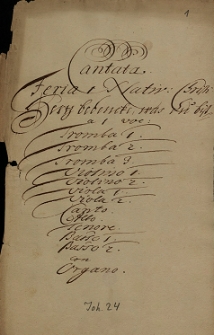 1
Cantata.
Feria 1 Nativ: Christi
à 1 voc:
Tromba 1.
Tromba 2.
Tromba 3.
Violino 1.
Violino 2.
Viola 1.
Viola 2.
Canto.
Alto.
Tenore.
Basso 1.
Basso 2.
con
Organo.
Joh. 24